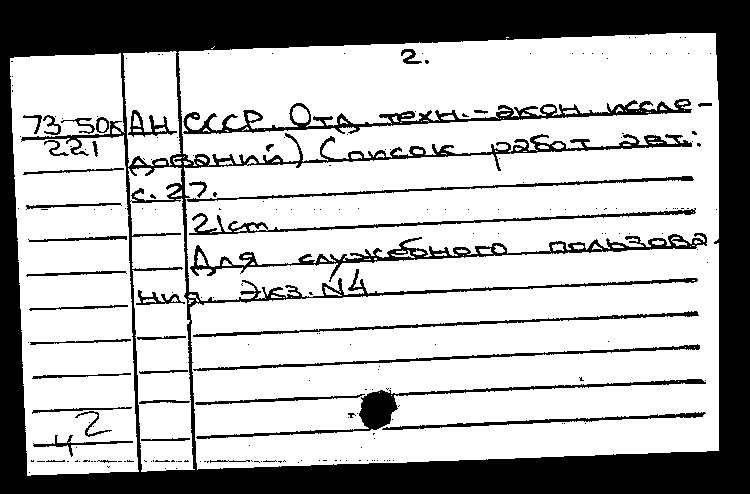 2.
73-50к АН СССР. Отд. техн.-экон. иссле-
221 дований) Список работ авт.:
с. 27.
21см.
Для служебного пользова-
ния. Экз. N4.
2
ч